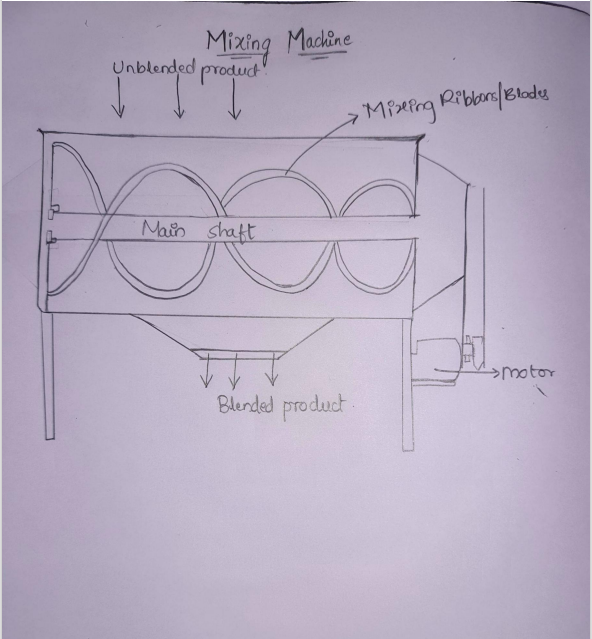 Mixing Machine
Unblended product
Mixing Ribbons/Blades
Main shaft
motor
Blended product